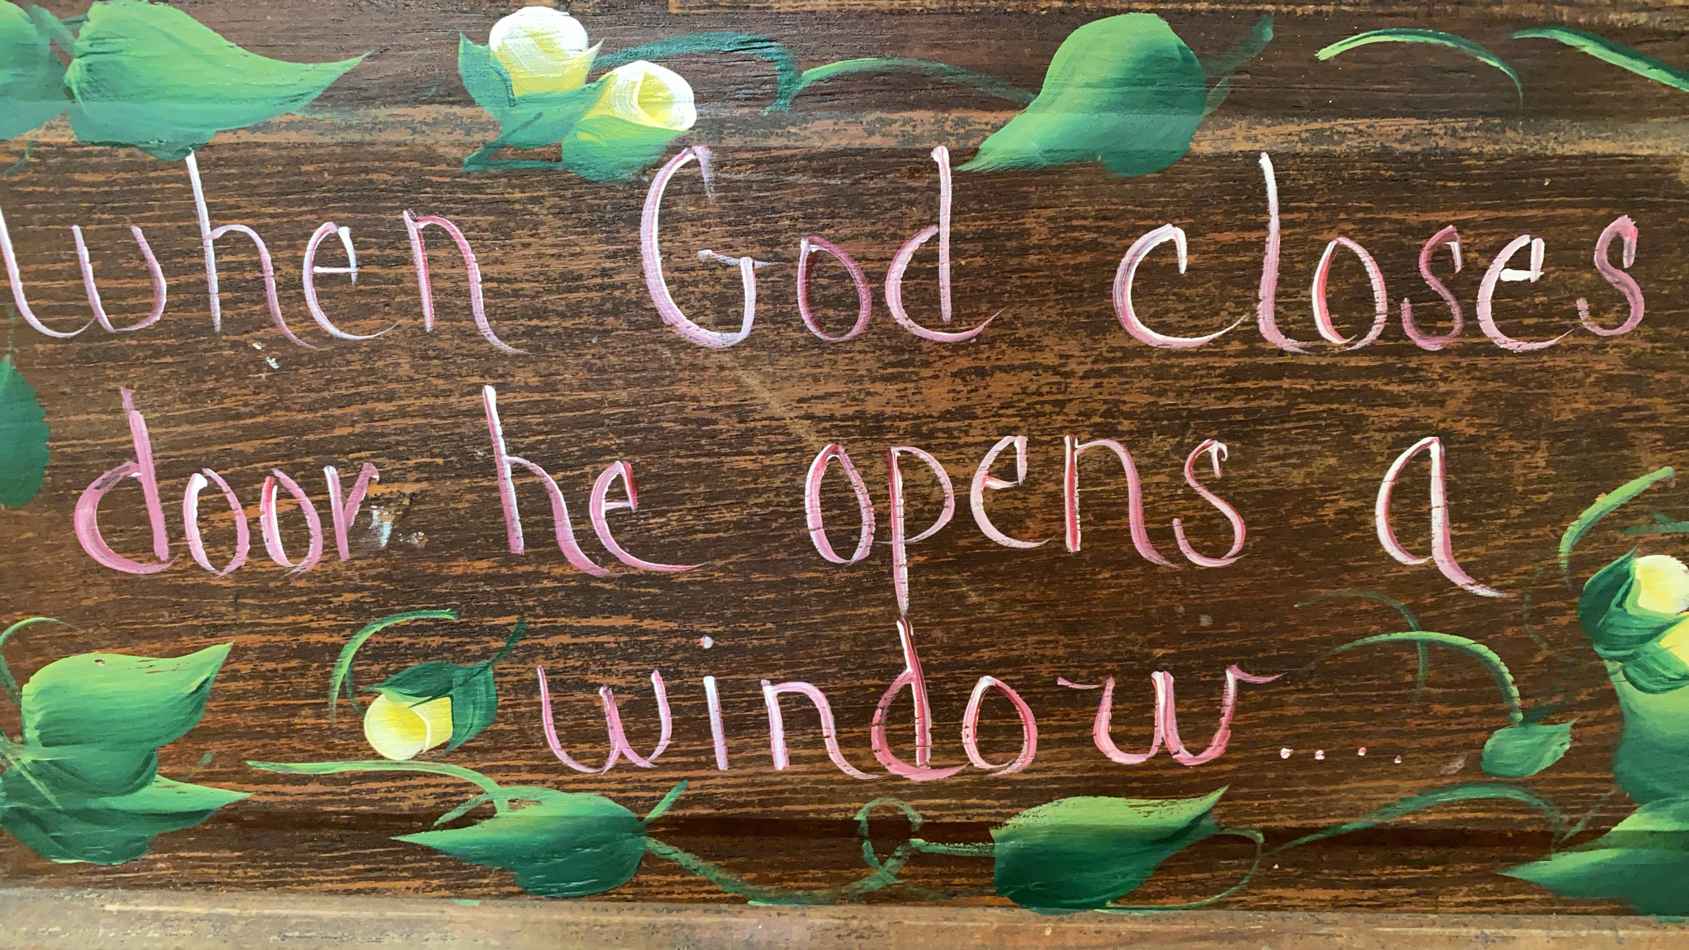 When God closes
door he opens a
window....